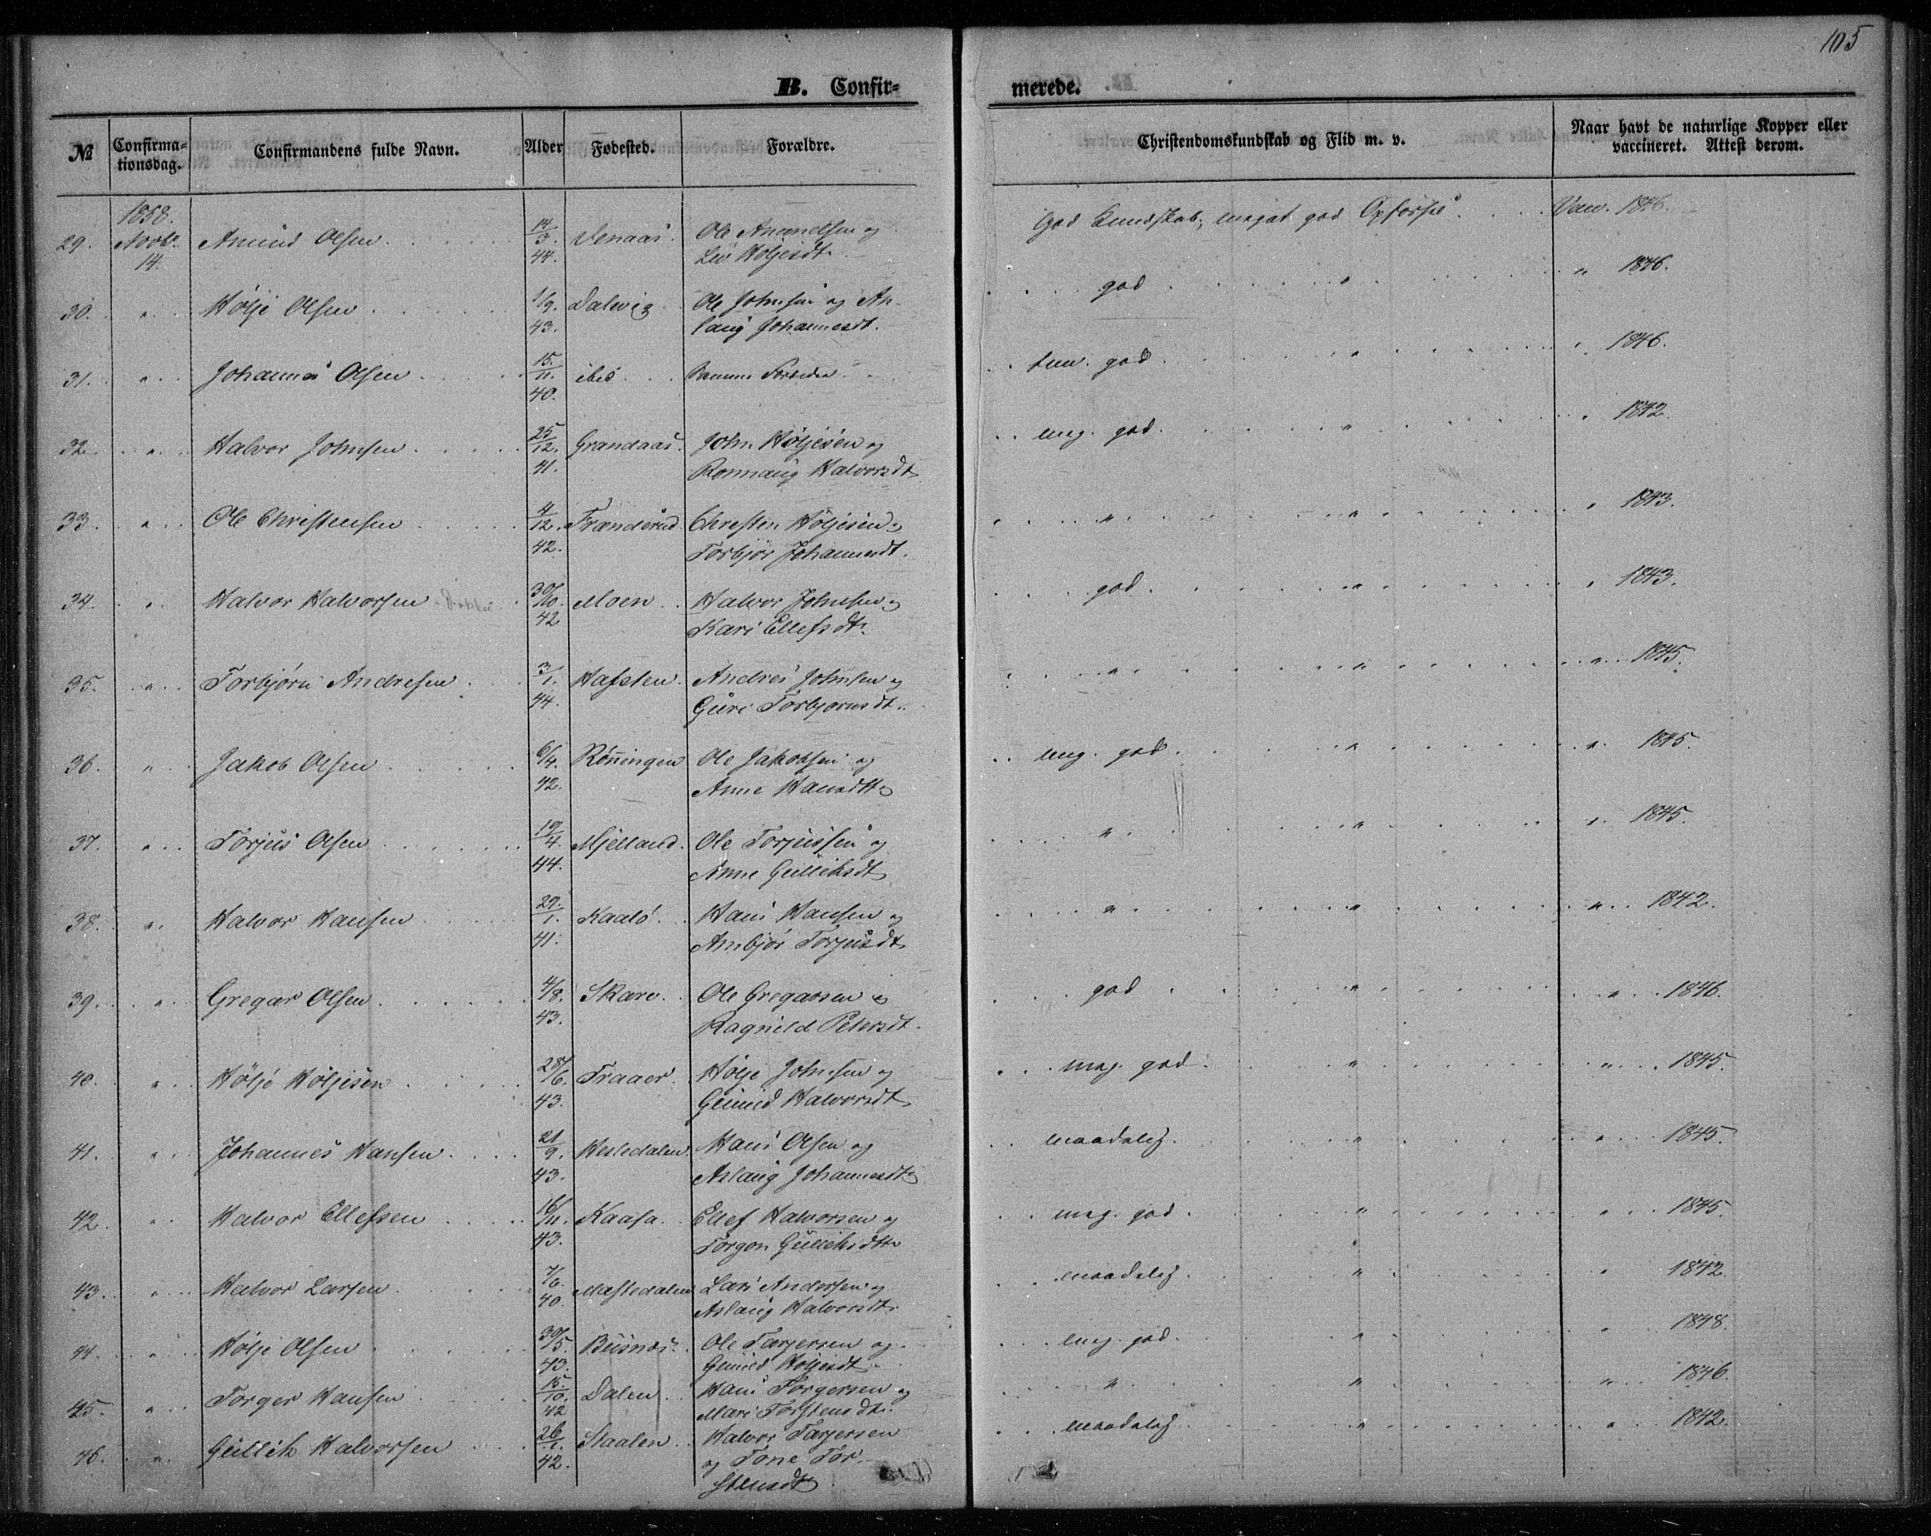 105
B. Confir-
merede.
№
Confirma-
tionsdag.
Confirmandens fulde Navn.
Alder
Fødested.
Forældre.
Christendomskundskab og Flid m. v.
Naar havt de naturlige Kopper eller
vaccineret. Attest derom.
1858.
29. Novb. 14. Amund Olsen 14/3 44. Venaas. Ole Amundsen og
Liv Höljesdt.
God Kundskab, meget god Opförsel Vacc. 1846.
30. " Hölje Olsen 1/9. 43. Dalevig Ole Johnsen og As-
laug Johannesdt.
god " " 1846.
31. " Johannes Olsen 15/11. 40. ibid. Samme Forældre
tem. god " " 1846.
32. " Halvor Johnsen 25/12. 41. Grandaas. John Höljesen og
Rønnaug Halvorsdt.
meg. god " " 1842.
33. " Ole Christensen 4/12. 42. Christen Höljesen og
Torbjör Johannesdt.
" " " 1843.
34. " Halvor Halvorsen 30/10. 42 Moen Halvor Johnsen og
Kari Ellefsdt.
god " " 1843.
35. " Torbjörn Andresen 3/1. 44. Hafsten. Andres Johnsen og
Guri Torbjørnsdt.
" " " 1845.
36. " Jakob Olsen 6/4. 42. Rønningen Ole Jakobsen og
Anne Hansdtr
meg. god " " 1845.
37. " Torjus Olsen 19/4. 44. Mjelland. Ole Torjussen og
Anne Gulliksdt.
" " " 1845.
38. " Halvor Hansen 29/1. 41. Kaalö. Hans Hansen og
Anbjör Torjusdt.
" " " 1842.
39. " Gregar Olsen 4/8. 43. Skare. Ole Gregarsen og
Ragnild Petersdt.
god " " 1846.
40. " Hölje Höljesen 28/6. 43. Traaer. Hölje Johnsen og
Gunild Halvorsdt.
meg. god " " 1845.
41. " Johannes Hansen 21/9. 43. Hestedalen Hans Olsen og
Aslaug Johannesdt.
maadelig. " " 1845.
42. " Halvor Ellefsen 16/11. 43. Kaasa. Ellef Halvorsen og
Torgon Gulliksdtr
meg. god " " 1845.
43. " Halvor Larsen 7/6. 40. Mastedalen Lars Andersen og
Aslaug Halvorsdt.
maadelig. " " 1842
44. " Hölje Olsen 30/5. 43. Busnes. Ole Tarjersen og
Gunild Höljesdt.
meg. god. " " 1848.
45. " Torger Hansen 15/10. 42 Dalen Hans Torgersen og
Mari Torstensdt.
" " " 1846.
46. " Gullik Halvorsen 26/1. 42. Staalen Halvor Tarjersen
og Tone Tor-
stensdt.
maadelig " 1842.